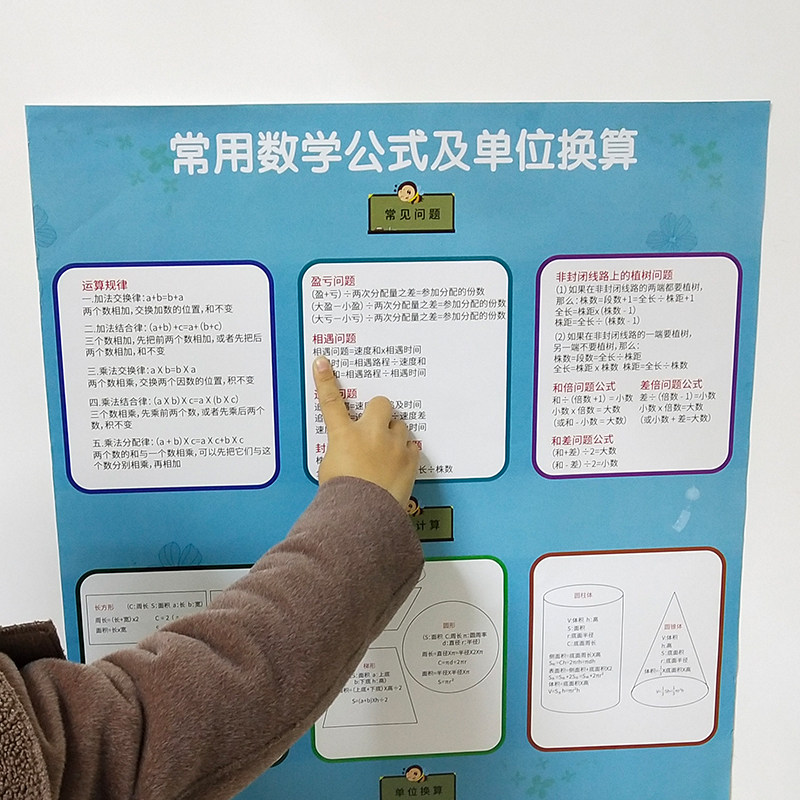 常用数学公式及单位换算
常见问题
运算规律
一.加法交换律:a+b=b+a
两个数相加,交换加数的位置,和不变
二.加法结合律:(a+b)+c=a+(b+c)
三个数相加,先把前两个数相加,或者先把后
两个数相加,和不变
三.乘法交换律:a X b=b X a
两个数相乘,交换两个因数的位置,积不变
四.乘法结合律:(a X b) X c=a X (b X c)
三个数相乘,先乘前两个数,或者先乘后两个
数,积不变
五.乘法分配律:(a + b) X c=a X c+b X c
两个数的和与一个数相乘,可以先把它们与这
个数分别相乘,再相加
盈亏问题
(盈+亏)÷两次分配量之差=参加分配的份数
(大盈－小盈)÷两次分配量之差=参加分配的份数
(大亏－小亏)÷两次分配量之差=参加分配的份数
相遇问题
相遇问题=速度和x相遇时间
时间=相遇路程÷速度和
和=相遇路程÷相遇时间
追
追
及时间
追
速度差
速
时间
封
题
长÷株数
非封闭线路上的植树问题
(1)如果在非封闭线路的两端都要植树,
那么:株数=段数+1=全长÷株距+1
全长=株距x(株数-1)
株距=全长÷(株数-1)
(2)如果在非封闭线路的一端要植树,
另一端不要植树,那么:
株数=段数=全长÷株距
全长=株距 X 株数 株距=全长÷株数
和倍问题公式 差倍问题公式
和÷(倍数+1)=小数 差÷(倍数-1)=小数
小数 x 倍数 = 大数 小数 x 倍数=大数
(或和 - 小数 = 大数) (或小数 + 差=大数)
和差问题公式
(和+差)÷2=大数
(和-差)÷2=小数
计算
长方形 (C:周长 S:面积 a:长 b:宽)
周长=(长+宽)x2
面积=长x宽
梯形
S:面积 a:上底
b:下底 h:高)
面积=(上底+下底)X高÷2
S=(a+b)Xh÷2
圆形
(S:面积 C:周长 π:圆周率
d:直径 r:半径)
周长=直径Xπ=半径X2Xπ
C=πd=2πr
面积=半径X半径Xπ
S=πr²
圆柱体
V:体积 h:高
S:面积
r:底面半径
C:底面周长
侧面积=底面周长X高
S侧=Ch=2πrh=πdh
表面积=侧面积+底面积X2
S表=S侧+2S底=S侧+2πr²
体积=底面积X高
V=S底h=πr²h
圆锥体
V:体积
h:高
S:底面积
r:底面半径
体积=1/3X底面积X高
单位换算